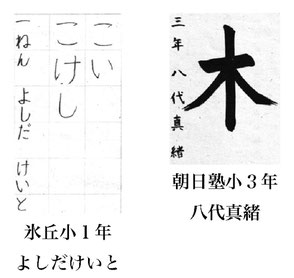 こい
こけし
一ねん よしだ けいと
氷丘小１年
よしだけいと
木
三年 八代真緒
朝日塾小３年
八代真緒